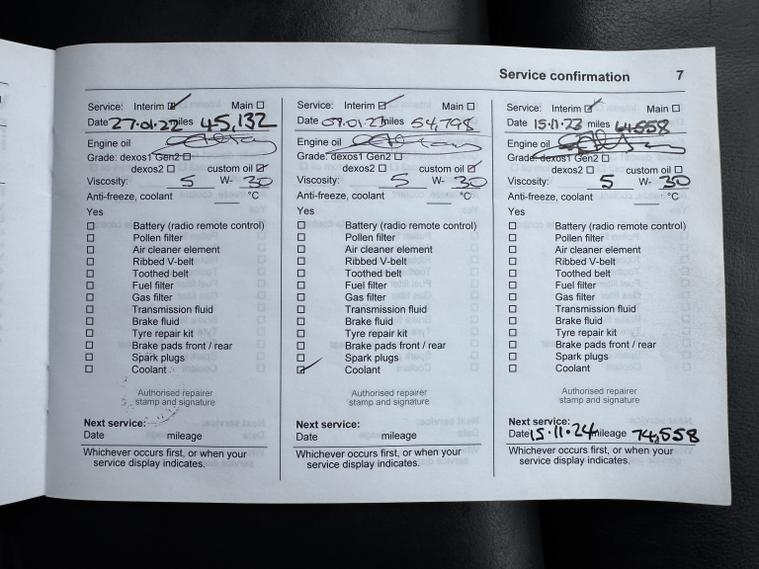 Service confirmation 7
Service: Interim ☑ Main ☐
Date 27.01.22 miles 45,132
Engine oil
Grade: dexos1 Gen2 ☐
dexos2 ☐ custom oil ☑
Viscosity: 5 W- 30
Anti-freeze, coolant ____ °C
Yes
☐ Battery (radio remote control)
☐ Pollen filter
☐ Air cleaner element
☐ Ribbed V-belt
☐ Toothed belt
☐ Fuel filter
☐ Gas filter
☐ Transmission fluid
☐ Brake fluid
☐ Tyre repair kit
☐ Brake pads front / rear
☐ Spark plugs
☐ Coolant
Authorised repairer
stamp and signature
Next service:
Date mileage
Whichever occurs first, or when your
service display indicates.
Service: Interim ☑ Main ☐
Date 09.01.23 miles 54,798
Engine oil
Grade: dexos1 Gen2 ☐
dexos2 ☐ custom oil ☑
Viscosity: 5 W- 30
Anti-freeze, coolant ____ °C
Yes
☐ Battery (radio remote control)
☐ Pollen filter
☐ Air cleaner element
☐ Ribbed V-belt
☐ Toothed belt
☐ Fuel filter
☐ Gas filter
☐ Transmission fluid
☐ Brake fluid
☐ Tyre repair kit
☐ Brake pads front / rear
☐ Spark plugs
☑ Coolant
Authorised repairer
stamp and signature
Next service:
Date mileage
Whichever occurs first, or when your
service display indicates.
Service: Interim ☑ Main ☐
Date 15.11.23 miles 64,558
Engine oil
Grade: dexos1 Gen2 ☐
dexos2 ☐ custom oil ☐
Viscosity: 5 W- 30
Anti-freeze, coolant ____ °C
Yes
☐ Battery (radio remote control)
☐ Pollen filter
☐ Air cleaner element
☐ Ribbed V-belt
☐ Toothed belt
☐ Fuel filter
☐ Gas filter
☐ Transmission fluid
☐ Brake fluid
☐ Tyre repair kit
☐ Brake pads front / rear
☐ Spark plugs
☐ Coolant
Authorised repairer
stamp and signature
Next service:
Date 15.11.24 mileage 74,558
Whichever occurs first, or when your
service display indicates.